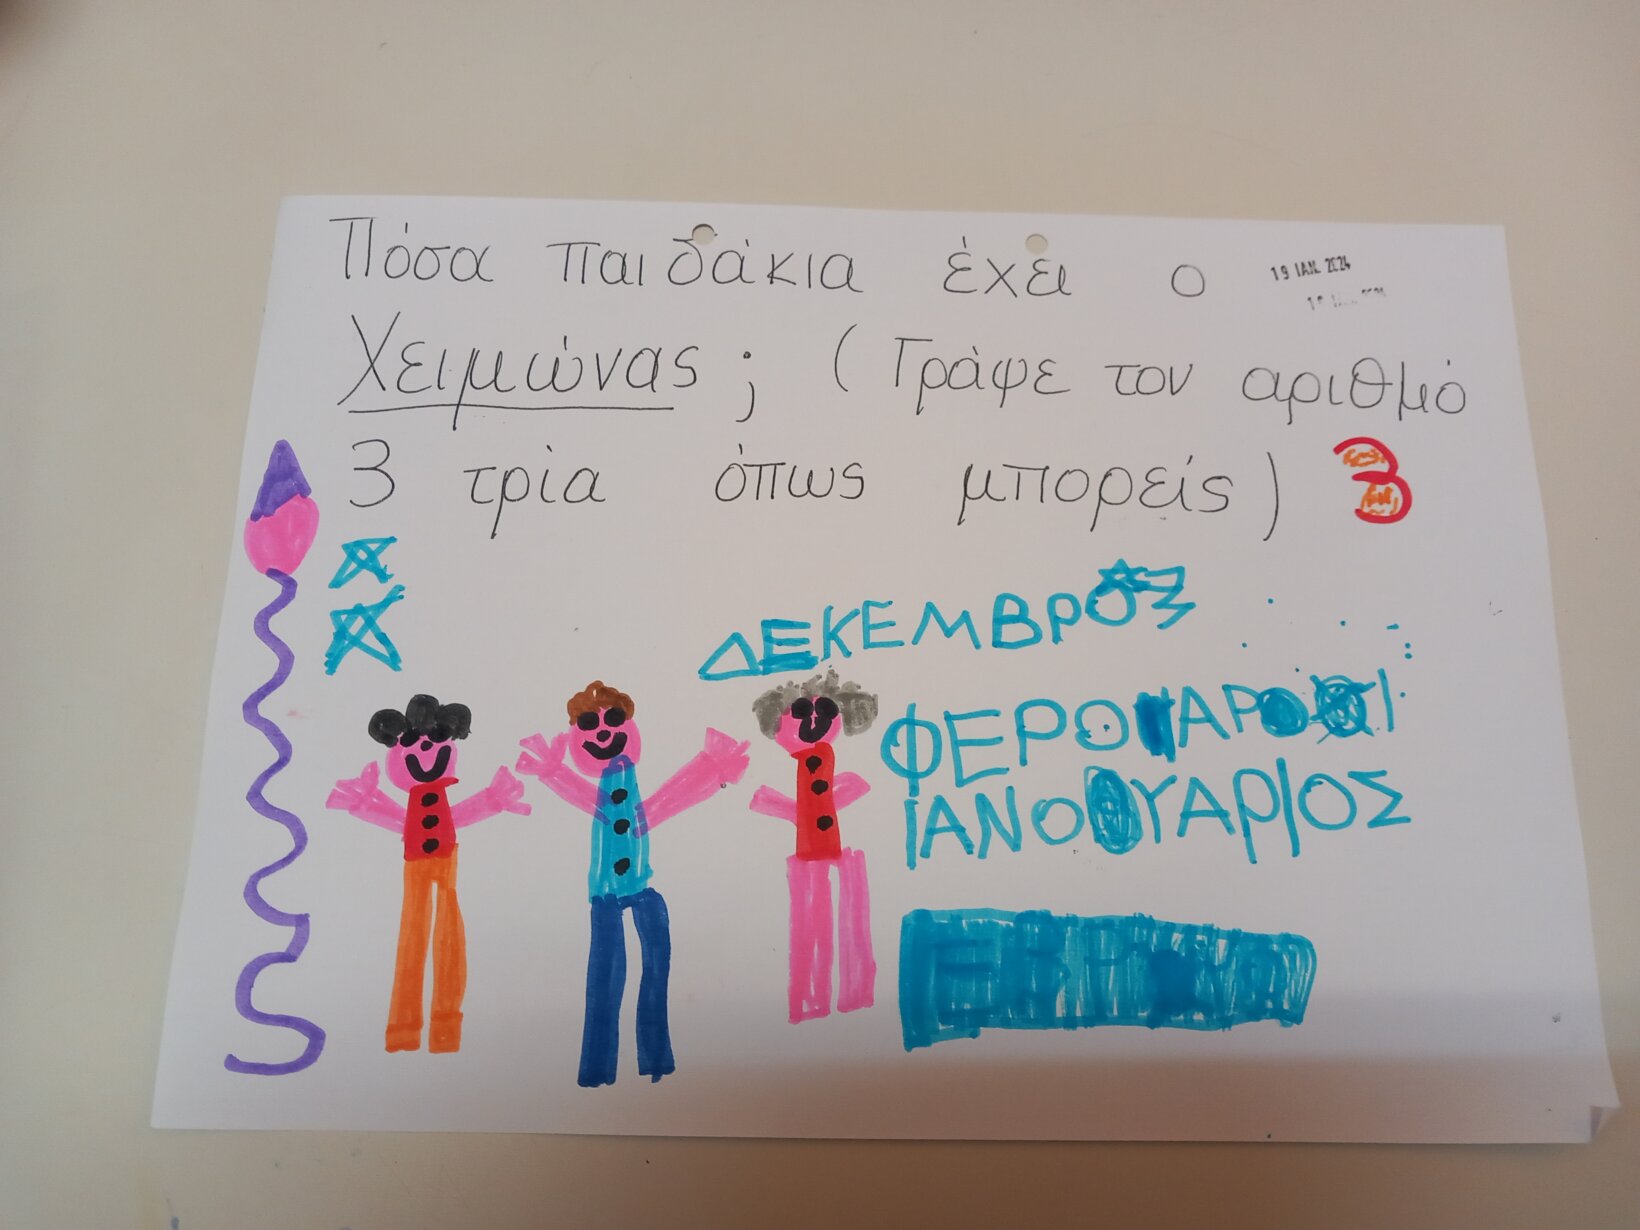 Πόσα παιδάκια έχει ο
19 ΙΑΝ. 2024
Χειμώνας ; ( Γράψε τον αριθμό
3 τρία όπως μπορείς) 3
ΔΕΚΕΜΒΡΟΣ
ΙΑΝΟΥΑΡΙΟΣ